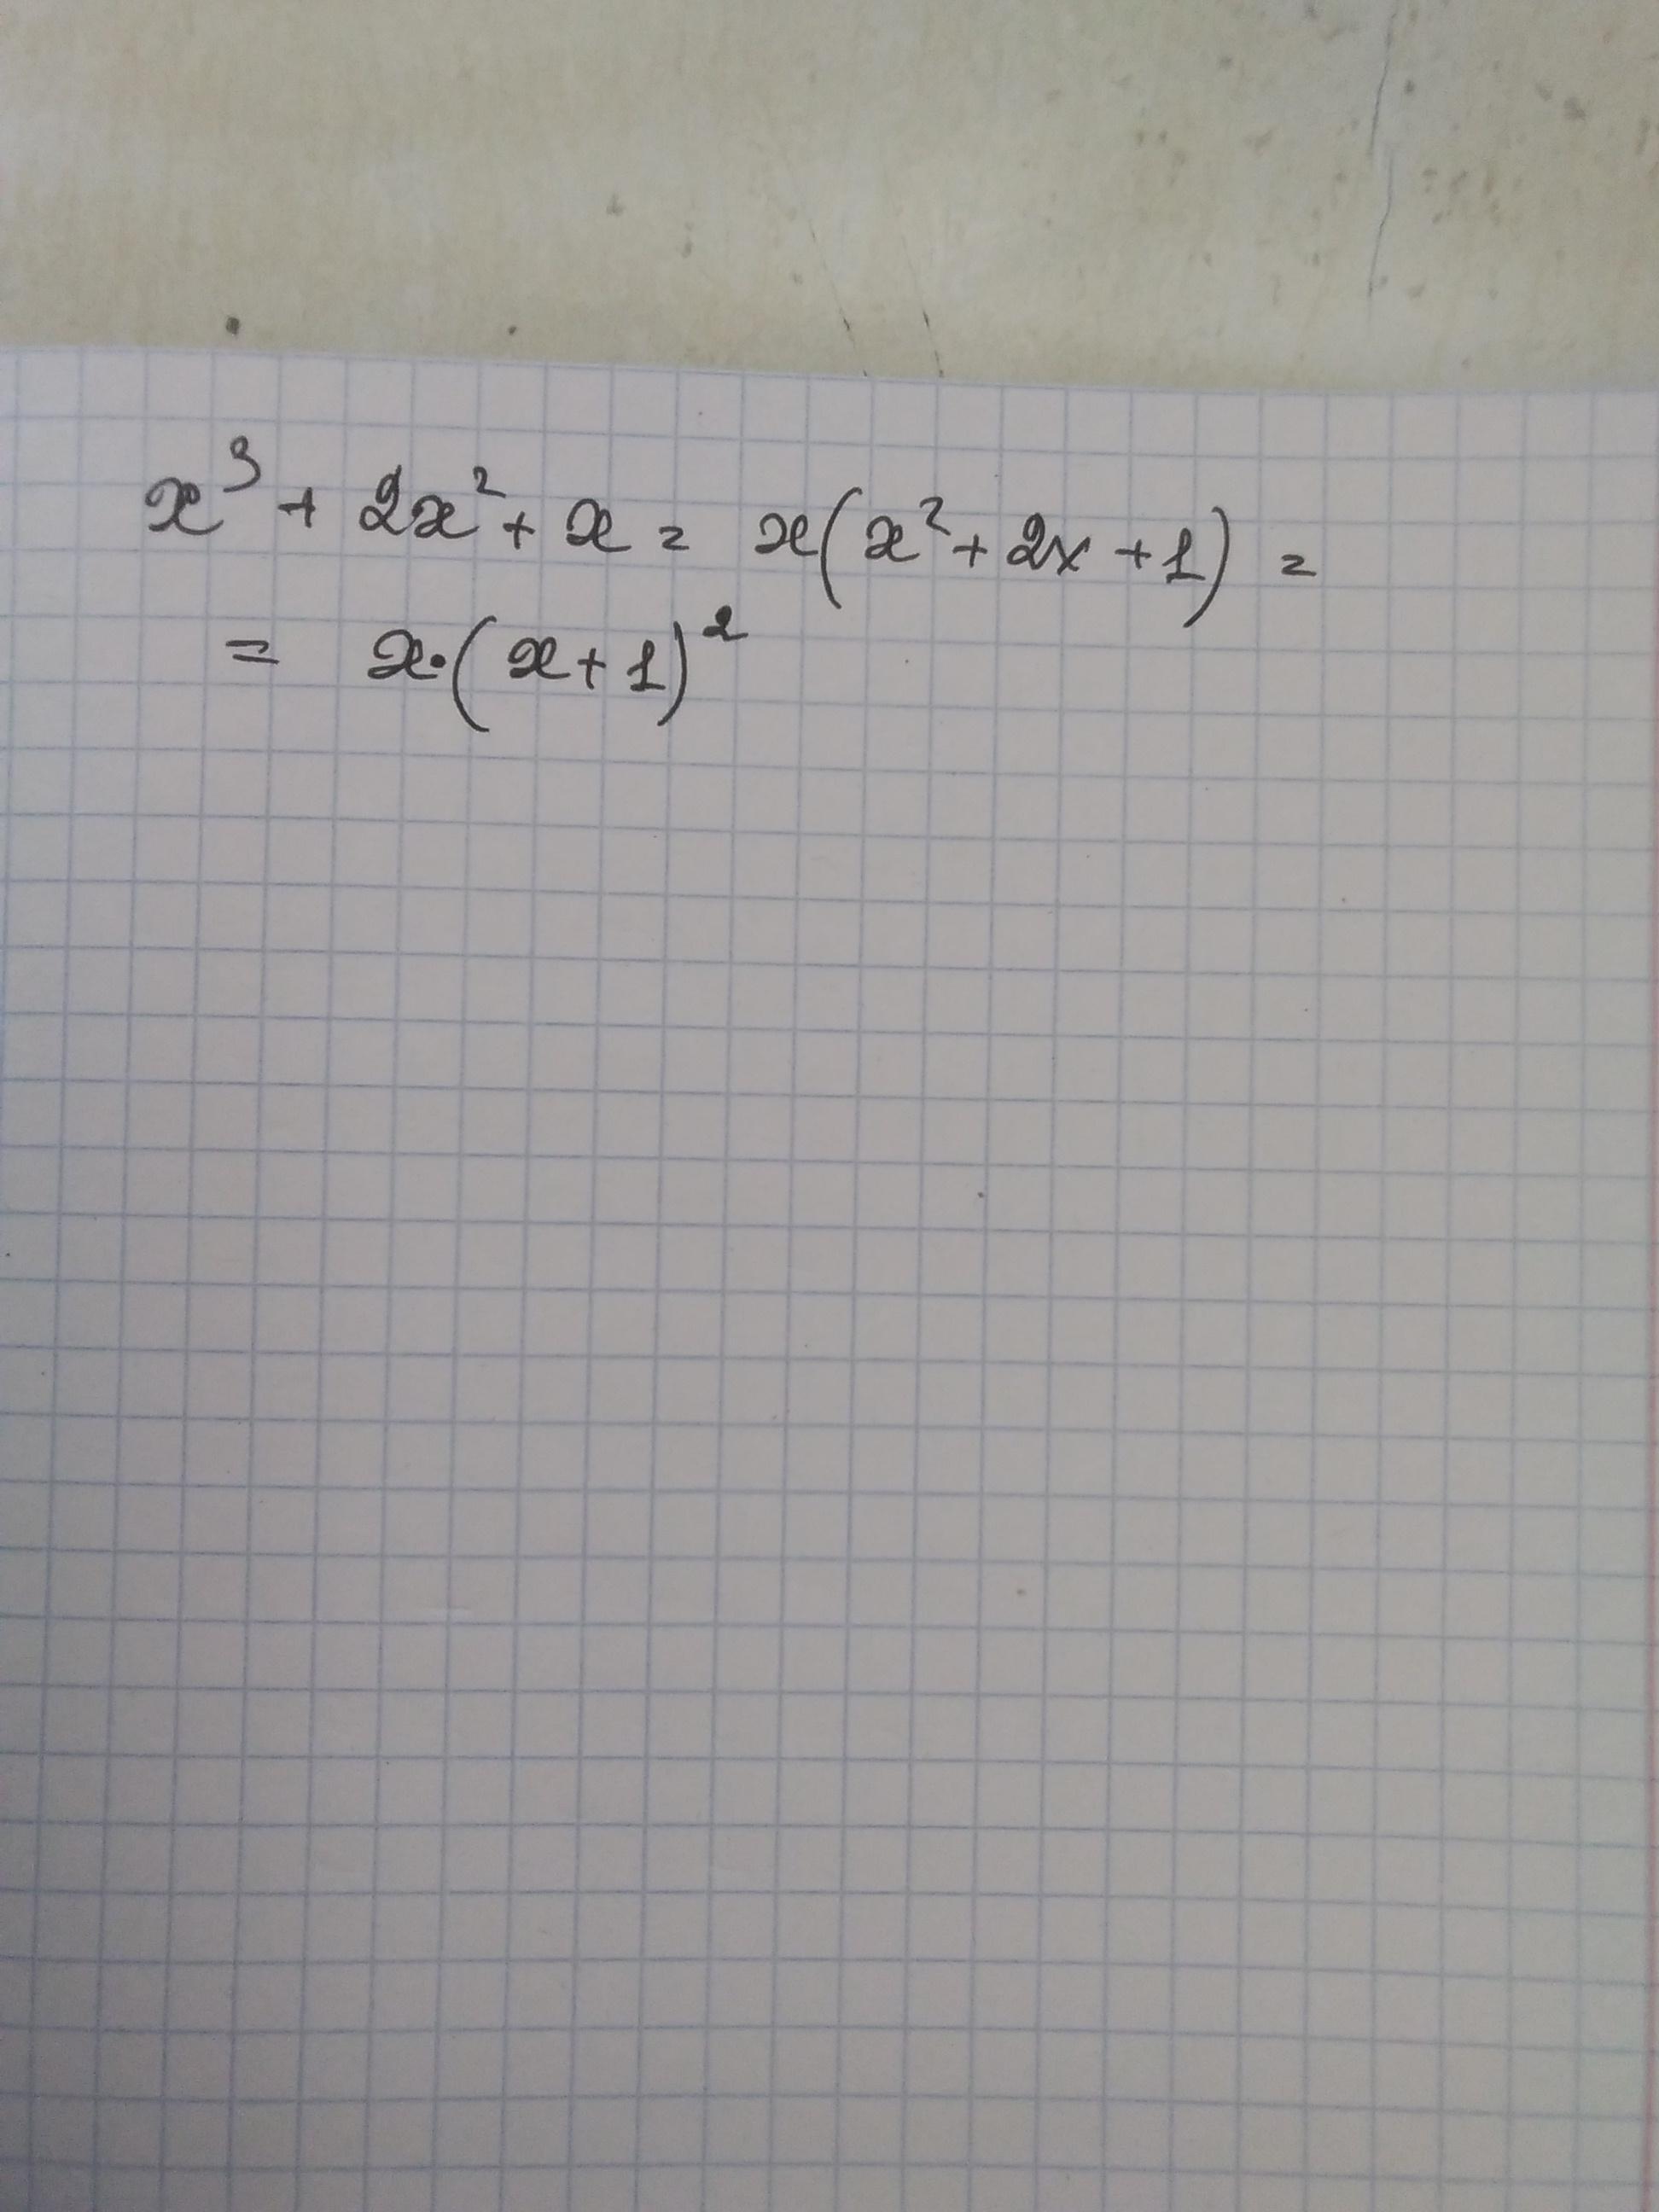 x³ + 2x² + x = x(x² + 2x + 1) =
= x·(x + 1)²